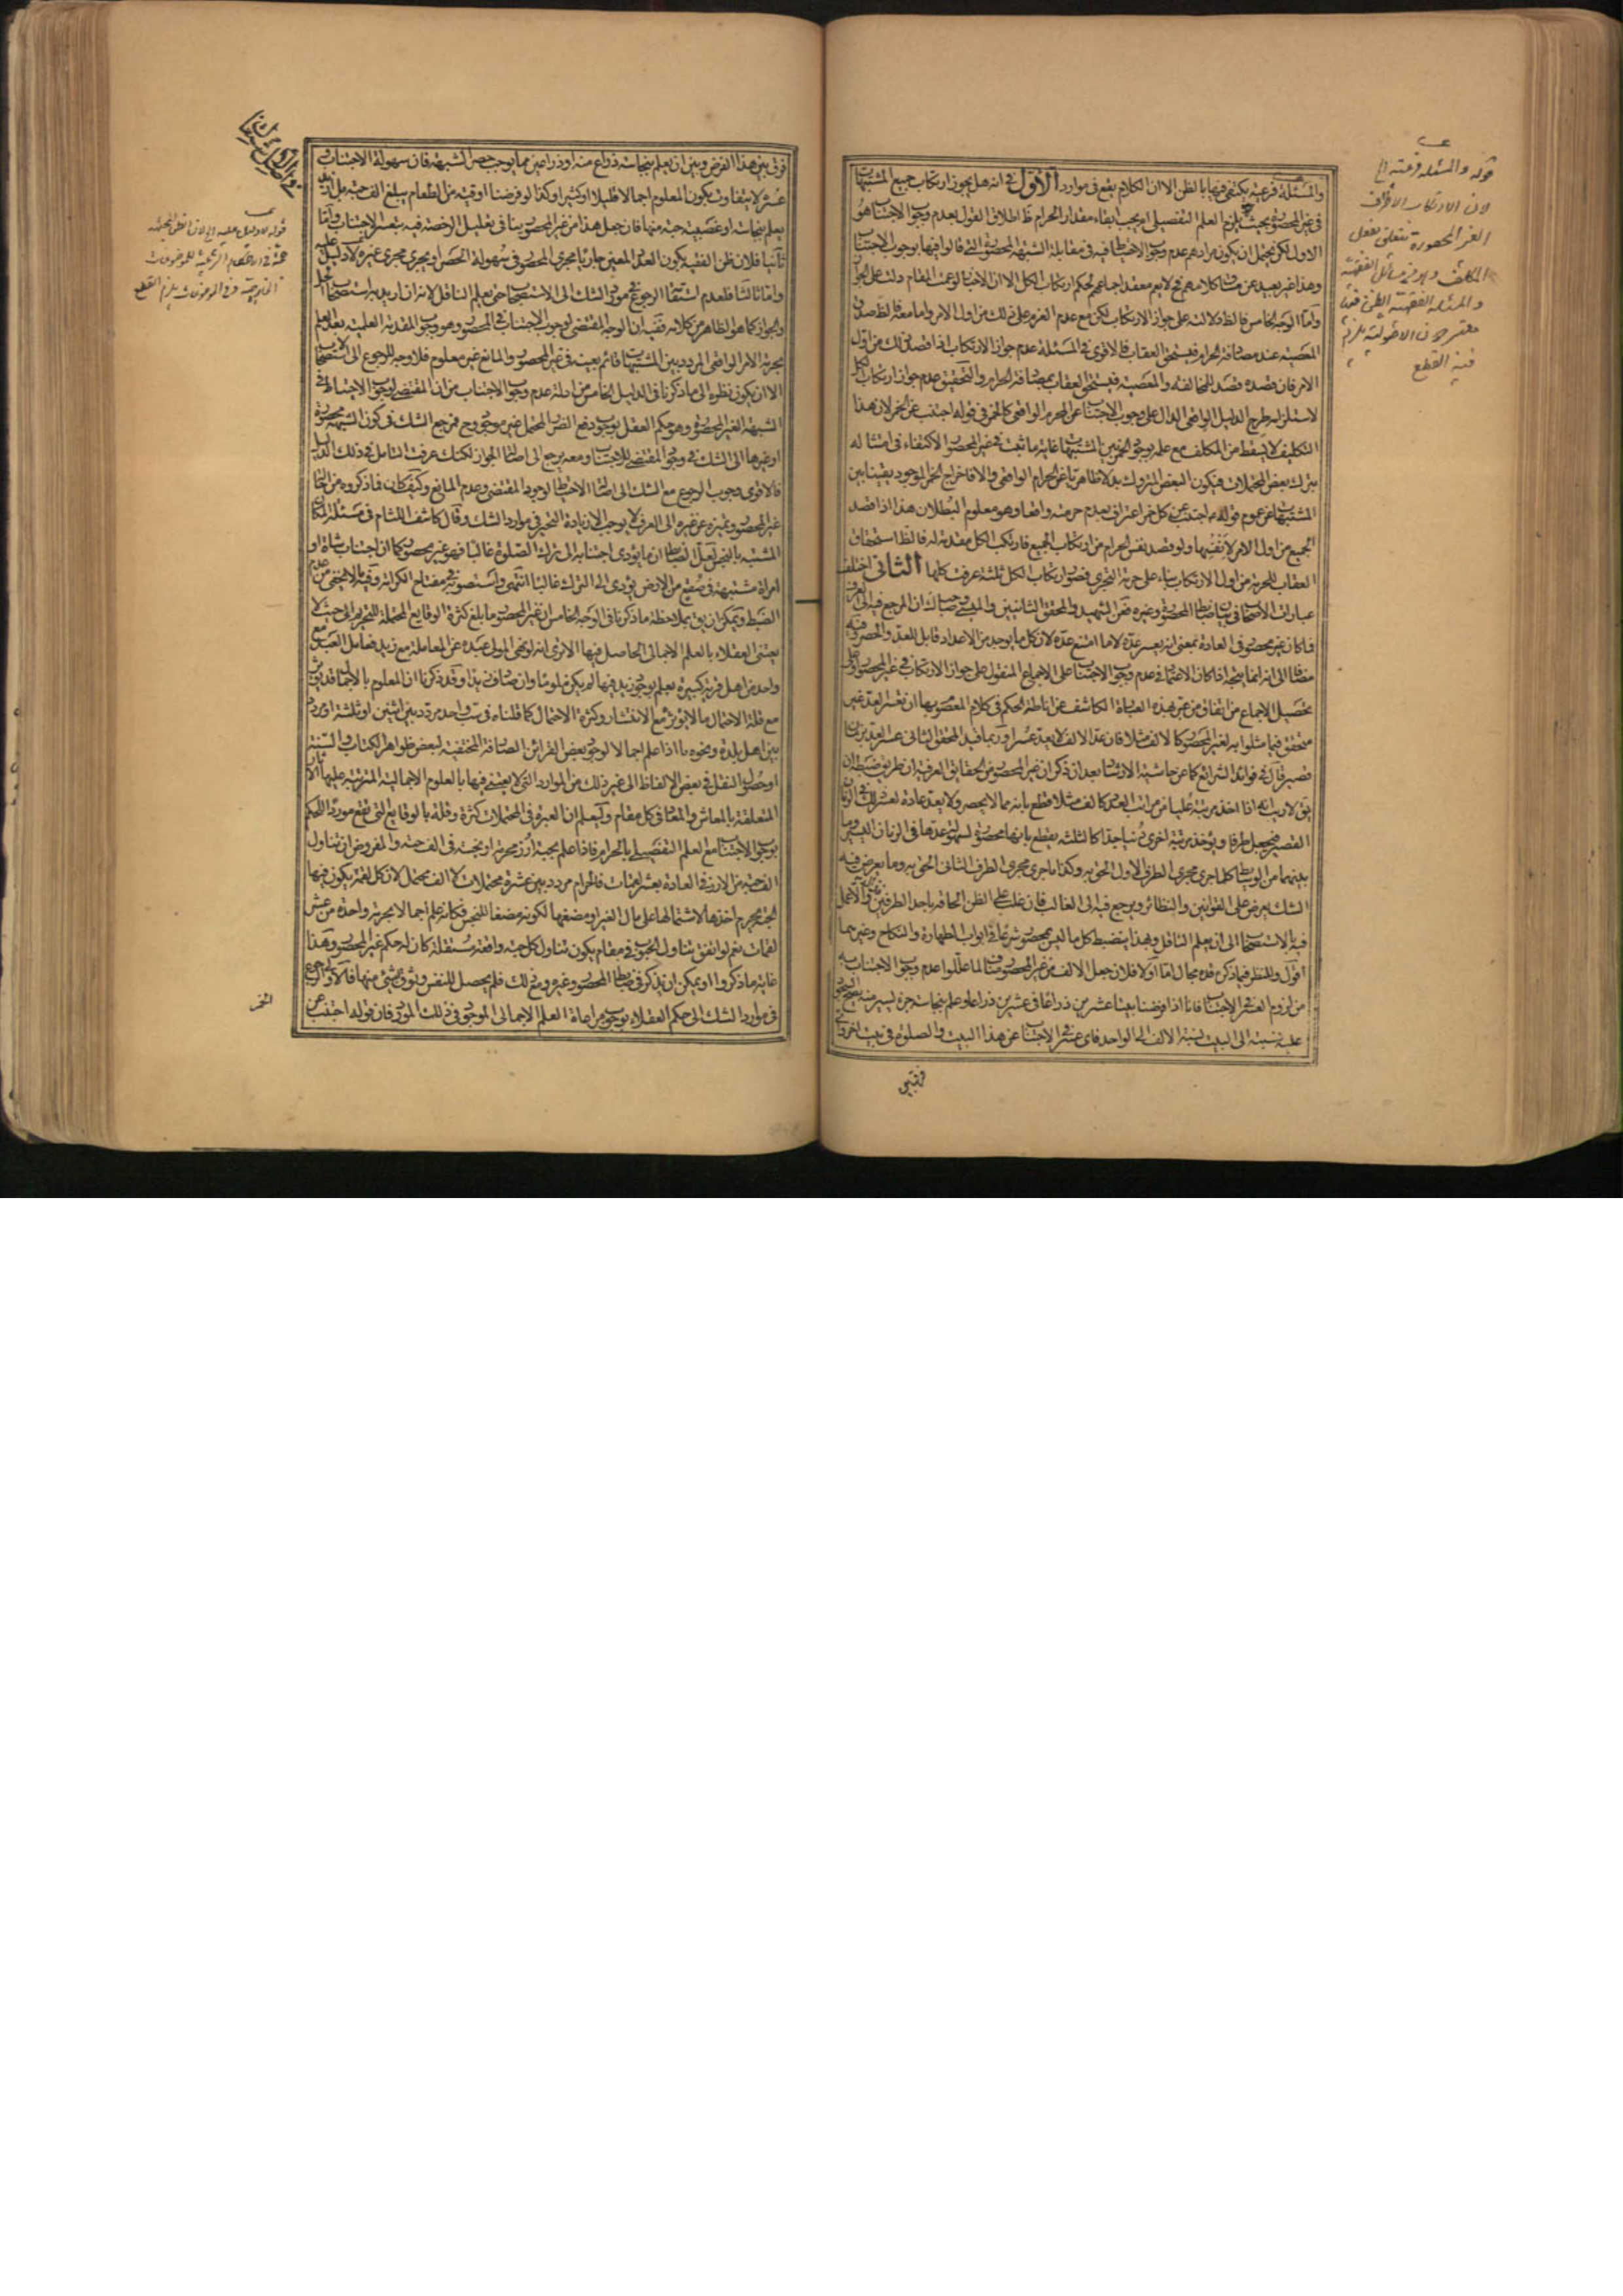 والمسئلة فرعية يكتفى فيها بالظن الا ان الكلام يقع فى موارد الاول فى انه هل يجوز ارتكاب جميع المشتبهات
فى غير المحصور بحيث يلزم العلم التفصيلى ام يجب ابقاء مقدار الحرام ظ اطلاق القول بعدم وجوب الاجتناب هو
الاول لكن يحتمل ان يكون مرادهم عدم وجوب الاحتياط فيه فى مقابلة الشبهة المحصورة التى قالوا فيها بوجوب الاجتناب
وهذا غير بعيد عن مساق كلامهم فح لا يعم معقد اجماعهم لحكم ارتكاب الكل الا ان الاخبار لو عمت المقام دلت على الجواز
واما الوجه الخامس فالظ دلالته على جواز الارتكاب لكن مع عدم العزم على ذلك من اول الامر واما معه فالظ صدق
المعصية عند مصادفة الحرام فيستحق العقاب فالاقوى فى المسئلة عدم جواز الارتكاب اذا قصد ذلك من اول
الامر فان قصده قصد للمخالفة والمعصية فيستحق العقاب بمصادفة الحرام والتحقيق عدم جواز ارتكاب الكل
لاستلزامه طرح الدليل الواقعى الدال على وجوب الاجتناب عن المحرم الواقعى كالخمر فى قوله اجتنب عن الخمر لان هذا
التكليف لا يسقط من المكلف مع علمه بوجود الخمر بين المشتبهات غاية ما ثبت فى غير المحصور الاكتفاء فى امتثاله
بترك بعض المحتملات فيكون البعض المتروك بدلا ظاهريا عن الحرام الواقعى والا فاخراج الخمر الموجود يقينا بين
المشتبهات عن عموم قوله اجتنب عن كل خمر اعتراف بعدم حرمته واقعا وهو معلوم البطلان هذا اذا قصد
الجميع من اول الامر لانفسها ولو قصد نفس الحرام من ارتكاب الجميع فارتكب الكل مقدمة له فالظ استحقاق
العقاب للحرمة من اول الارتكاب بناء على حرمة التجرى فصور ارتكاب الكل ثلثة عرفت كلها الثانى اختلف
عبارات الاصحاب فى بيان ضابط المحصور وغيره فعن الشهيد والمحقق الثانيين والميسى وصاحب المدارك ان المرجع فيه الى العرف
فما كان غير محصور فى العادة بمعنى انه يعسر عده لا ما امتنع عده لان كل ما يوجد من الاعداد قابل للعد والحصر وفيه
مضافا الى انه انما يتجه اذا كان الاعتماد فى عدم وجوب الاجتناب على الاجماع المنقول على جواز الارتكاب فى غير المحصور او على
تحصيل الاجماع من اتفاق من عبر بهذه العبارة الكاشف عن اناطة الحكم فى كلام المعصوم بها ان تعسر العد غير
متحقق فيما مثلوا به لغير المحصور كالالف مثلا فان عد الالف لا يعد عسرا وربما قيد المحقق الثانى عسر العد بزمان
قصير قال فى فوائد الشرائع كما عن حاشية الارشاد بعد ان ذكر ان غير المحصور من الحقايق العرفية ان طريق ضبطه ان
يق لا ريب انه اذا اخذ مرتبة عليا من مراتب العدد كالف مثلا قطع بانه مما لا يحصر ولا يعد عادة لعسر ذلك فى الزمان
القصير فيجعل طرفا ويؤخذ مرتبة اخرى دنيا جدا كالثلثة يقطع بانها محصورة لسهولة عدها فى الزمان اليسير وما
بينهما من الوسايط كلما جرى مجرى الطرف الاول الحق به وكذا ما جرى مجرى الطرف الثانى الحق به وما يعرض فيه
الشك يعرض على القوانين والنظائر ويرجع فيه الى الغالب فان غلب على الظن الحاقه باحد الطرفين فذاك والا عمل
فيه بالاستصحاب الى ان يعلم الناقل وبهذا ينضبط كل ما ليس بمحصور شرعا فى ابواب الطهارة والنكاح وغيرهما
اقول وللنظر فيما ذكره قده مجال اما اولا فلان جعل الالف من غير المحصور مناف لما عللوا عدم وجوب الاجتناب به
من لزوم العسر فى الاجتناب فانا اذا فرضنا بيتا عشرين ذراعا فى عشرين ذراعا وعلم بنجاسة جزء يسير منه يصح السجود
عليه نسبته الى البيت نسبة الالف الى الواحد فاى عسر فى الاجتناب عن هذا البيت والصلوة فى بيت اخر واى
فرق بين
قوله والمسئلة فرعية الخ
لان الارتكاب الاطراف
الغير المحصورة يتعلق بفعل
المكلف وهو من مسائل الفقهية
والمسئلة الفقهية الظن فيها
معتبر لان الاصولية يلزم
فيه القطع
فرق بين هذا الفرض وبين ان يعلم بنجاسة ذراع منه او ذراعين مما يوجب حصر الشبهة فان سهولة الاجتناب و
عسره لا يتفاوت بكون المعلوم اجمالا قليلا او كثيرا وكذا لو فرضنا اوقية من الطعام يبلغ الف حبة بل ازيد
يعلم بنجاسة او غصبية حبة منها فان جعل هذا من غير المحصور ينافى تعليل الرخصة فيه بتعسر الاجتناب واما
ثانيا فلان ظن الفقيه بكون العدد المعين جاريا مجرى المحصور فى سهولة الحصر او يجرى مجرى غيره لا دليل عليه
واما ثالثا فلعدم استقامة الرجوع فى مورد الشك الى الاستصحاب حتى يعلم الناقل لانه ان اريد به استصحاب الحل
والجواز كما هو الظاهر من كلامه ففيه ان الوجه المقتضى لوجوب الاجتناب فى المحصور وهو وجوب المقدمة العلمية بعد العلم
بحرمة الامر الواقعى المردد بين المشتبهات قائم بعينه فى غير المحصور والمانع غير معلوم فلا وجه للرجوع الى الاستصحاب
الا ان يكون نظره الى ما ذكرنا فى الدليل الخامس من ادلة عدم وجوب الاجتناب من ان المقتضى لوجوب الاجتناب فى
الشبهة الغير المحصورة وهو حكم العقل بوجوب دفع الضرر المحتمل غير موجود وح فمرجع الشك فى كون الشبهة محصورة
او غيرها الى الشك فى وجود المقتضى للاجتناب ومعه يرجع الى اصالة الجواز لكنك عرفت التامل فى ذلك الدليل
فالاقوى وجوب الرجوع مع الشك الى اصالة الاحتياط لوجود المقتضى وعدم المانع وكيف كان فما ذكروه من احالة
غير المحصور وتميزه عن غيره الى العرف لا يوجب الا زيادة التحير فى موارد الشك وقال كاشف اللثام فى مسئلة المكان
المشتبه بالنجس لعل الضابط ان ما يؤدى اجتنابه الى ترك الصلوة غالبا فهو غير محصور كما ان اجتناب شاة او
امراة مشتبهة فى صقع من الارض يؤدى الى الترك غالبا انتهى واستصوبه فى مفتاح الكرامة وفيه ما لا يخفى من عدم
الضبط ويمكن ان يق بملاحظة ما ذكرنا فى الوجه الخامس ان غير المحصور ما بلغ كثرة الوقايع المحتملة للتحريم الى حيث لا
يعتنى العقلاء بالعلم الاجمالى الحاصل فيها الا ترى انه لو نهى المولى عبده عن المعاملة مع زيد فعامل العبد مع
واحد من اهل قرية كبيرة يعلم بوجود زيد فيها لم يكن ملوما وان صادف زيدا وقد ذكرنا ان المعلوم بالاجمال قد يؤثر
مع قلة الاحتمال ما لا يؤثره مع الانتشار وكثرة الاحتمال كما قلناه فى سب واحد مردد بين اثنين او ثلثة او مردد
بين اهل بلدة ونحوه ما اذا علم اجمالا لوجود بعض القرائن الصارفة المختفية لبعض ظواهر الكتاب والسنة
او حصول النقل فى بعض الالفاظ الى غير ذلك من الموارد التى لا يعتنى فيها بالعلوم الاجمالية المترتبة عليها الاثار
المتعلقة بالمعاش والمعاد فى كل مقام وليعلم ان العبرة فى المحتملات كثرة وقلة بالوقايع التى تقع موردا للحكم
بوجوب الاجتناب مع العلم التفصيلى بالحرام فاذا علم بحبة ارز محرمة او نجسة فى الف حبة والمفروض ان تناول
الف حبة من الارز فى العادة بعشر لقمات فالحرام مردد بين عشرة محتملات لا الف محتمل لان كل لقمة يكون فيها
الحبة يحرم اخذها لاشتمالها على مال الغير او مضغها لكونه مضغا للنجس فكانه علم اجمالا بحرمة واحدة من عشر
لقمات نعم لو اتفق تناول الحبوب فى مقام يكون تناول كل حبة واقعة مستقلة كان له حكم غير المحصور وهذا
غاية ما ذكروا او يمكن ان يذكر فى ضابط المحصور وغيره ومع ذلك فلم يحصل للنفس وثوق بشئ منها فالاولى الرجوع
فى موارد الشك الى حكم العقلاء بوجوب مراعاة العلم الاجمالى الموجود فى ذلك المورد فان قوله اجتنب عن
الخمر
قوله لا دليل عليه الخ لان الظن
القطع